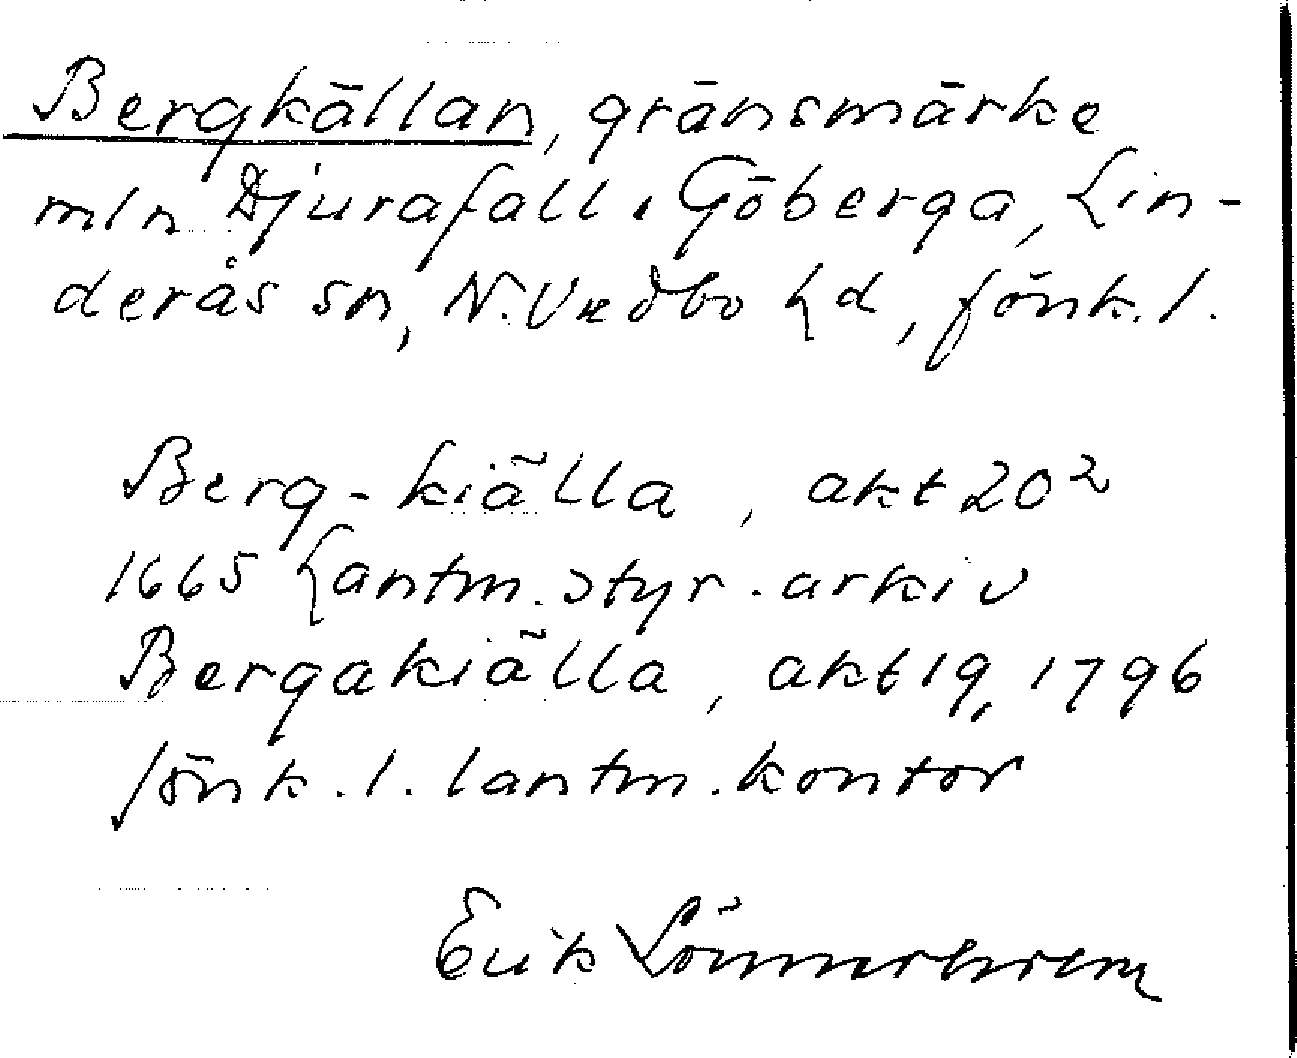 Bergkällan, gränsmärke
mln Djurafall o Göberga, Lin-
derås sn, N. Vedbo hd, Jönk. l.
Berg-kiälla, akt 20²
1665 Lantm. styr. arkiv
Bergakiälla, akt 19, 1796
Jönk. l. lantm. kontor
Erik Lönnerholm